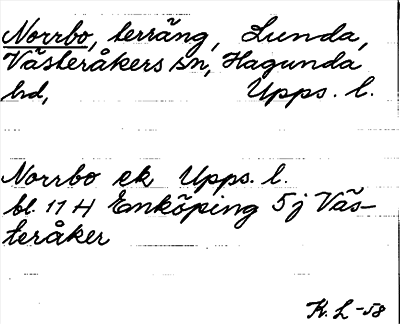 Norrbo, terräng, Lunda,
Västeråkers sn, Hagunda
hd, Upps. l.
Norrbo ek Upps. l.
bl. 11 H Enköping 5 j Väs-
teråker
K. L -58